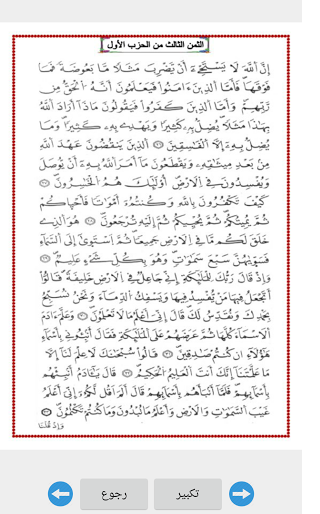 الثمن الثالث من الحزب الأول
إِنَّ اَللَّهَ لَا يَسْتَحْيِۦٓ أَنْ يَّضْرِبَ مَثَلًا مَّا بَعُوضَةً فَمَا
فَوْقَهَا فَأَمَّا اَلذِينَ ءَامَنُواْ فَيَعْلَمُونَ أَنَّهُ اُلْحَقُّ مِن
رَّبِّهِمْ وَأَمَّا اَلذِينَ كَفَرُواْ فَيَقُولُونَ مَاذَآ أَرَادَ اَللَّهُ
بِهَٰذَا مَثَلًا يُضِلُّ بِهِۦ كَثِيرًا وَيَهْدِے بِهِۦ كَثِيرًا وَمَا
يُضِلُّ بِهِۦٓ إِلَّا اَلْفَٰسِقِينَ اَلذِينَ يَنقُضُونَ عَهْدَ اَللَّهِ
مِنۢ بَعْدِ مِيثَٰقِهِۦ وَيَقْطَعُونَ مَآ أَمَرَ اَللَّهُ بِهِۦٓ أَنْ يُّوصَلَ
وَيُفْسِدُونَ فِے اِلَارْضِ أُوْلَٰٓئِكَ هُمُ اُلْخَٰسِرُونَ
كَيْفَ تَكْفُرُونَ بِاللَّهِ وَكُنتُمُۥٓ أَمْوَٰتًا فَأَحْيَٰكُمْ
ثُمَّ يُمِيتُكُمْ ثُمَّ يُحْيِيكُمْ ثُمَّ إِلَيْهِ تُرْجَعُونَ هُوَ اَلذِے
خَلَقَ لَكُم مَّا فِے اِلَارْضِ جَمِيعًا ثُمَّ اَسْتَوَىٰٓ إِلَى اَلسَّمَآءِ
فَسَوَّىٰهُنَّ سَبْعَ سَمَٰوَٰتٍ وَهُوَ بِكُلِّ شَےْءٍ عَلِيمٌ
وَإِذْ قَالَ رَبُّكَ لِلْمَلَٰٓئِكَةِ إِنِّے جَاعِلٌ فِے اِلَارْضِ خَلِيفَةً قَالُوٓاْ
أَتَجْعَلُ فِيهَا مَنْ يُّفْسِدُ فِيهَا وَيَسْفِكُ اُلدِّمَآءَ وَنَحْنُ نُسَبِّحُ
بِحَمْدِكَ وَنُقَدِّسُ لَكَ قَالَ إِنِّيَ أَعْلَمُ مَا لَا تَعْلَمُونَ وَعَلَّمَ ءَادَمَ
اَلَاسْمَآءَ كُلَّهَا ثُمَّ عَرَضَهُمْ عَلَى اَلْمَلَٰٓئِكَةِ فَقَالَ أَنۢبِـُٔونِے بِأَسْمَآءِ
هَٰٓؤُلَآءِ ان كُنتُمْ صَٰدِقِينَ قَالُواْ سُبْحَٰنَكَ لَا عِلْمَ لَنَآ إِلَّا
مَا عَلَّمْتَنَآ إِنَّكَ أَنتَ اَلْعَلِيمُ اُلْحَكِيمُ قَالَ يَٰٓـَٔادَمُ أَنۢبِئْهُم
بِأَسْمَآئِهِمْ فَلَمَّآ أَنۢبَأَهُم بِأَسْمَآئِهِمْ قَالَ أَلَمَ اَقُل لَّكُمُۥٓ إِنِّيَ أَعْلَمُ
غَيْبَ اَلسَّمَٰوَٰتِ وَالَارْضِ وَأَعْلَمُ مَا تُبْدُونَ وَمَا كُنتُمْ تَكْتُمُونَ
وَإِذْ قُلْنَا
رجوع تكبير